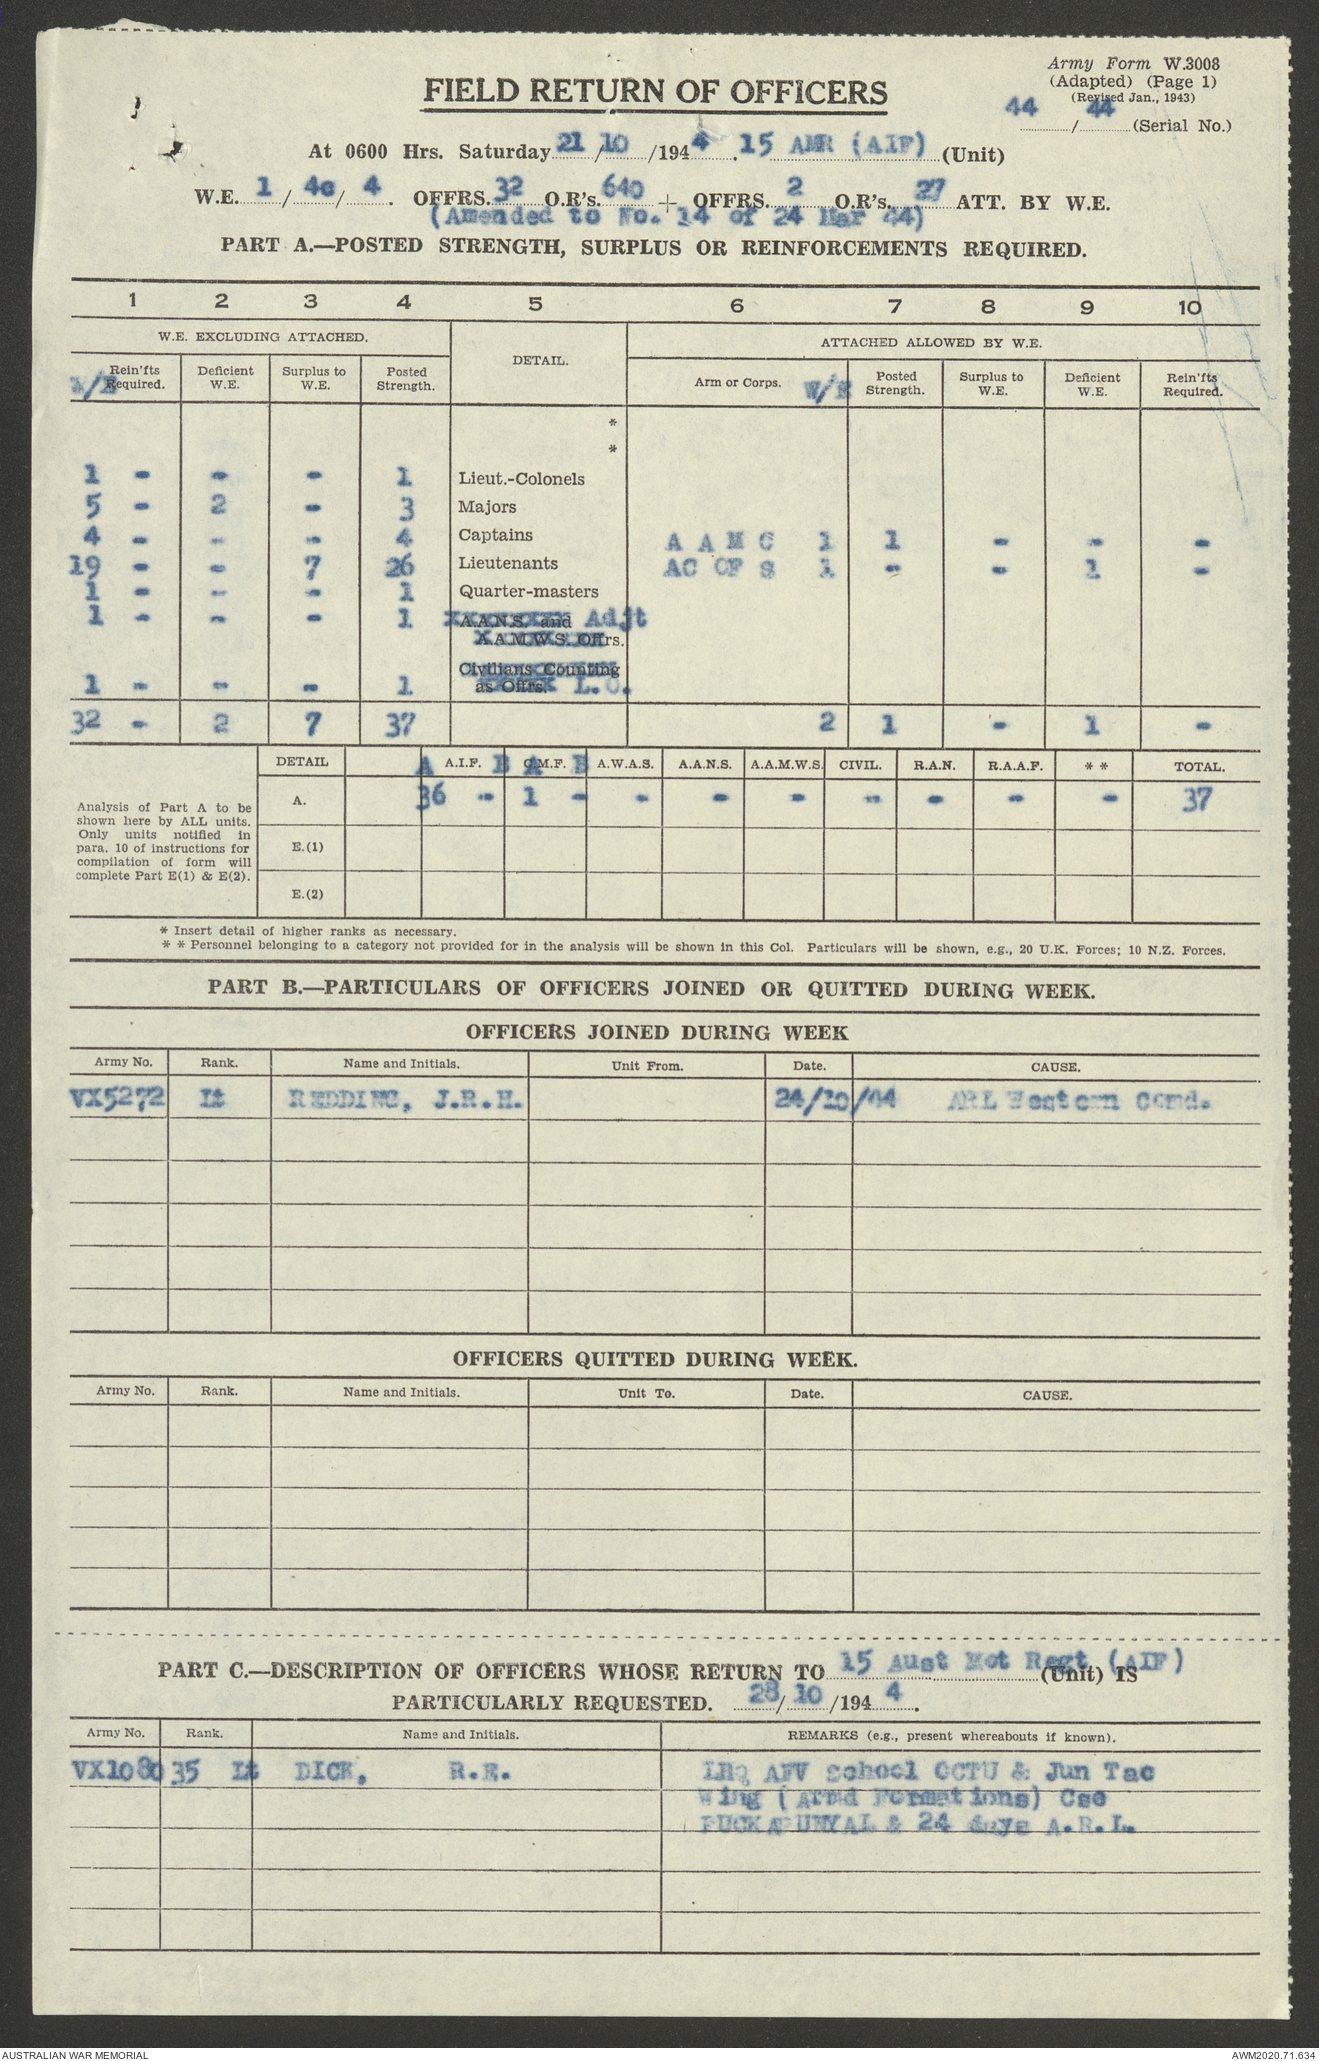 Army Form W.3008
(Adapted) (Page 1)
(Revised Jan., 1943)
44/44 (Serial No.)
FIELD RETURN OF OFFICERS
At 0600 Hrs. Saturday 21/10/1944. 15 AMR (AIF) (Unit)
W.E. 1/4c/4. OFFRS. 32 O.R's. 640 + OFFRS. 2 O.R's. 27 ATT. BY W.E.
(Amended to No. 14 of 24 Mar 44)
PART A.—POSTED STRENGTH, SURPLUS OR REINFORCEMENTS REQUIRED.
1 2 3 4 5 6 7 8 9 10
W.E. EXCLUDING ATTACHED. DETAIL. ATTACHED ALLOWED BY W.E.
W/E Rein'fts Required. Deficient W.E. Surplus to W.E. Posted Strength. Arm or Corps. W/E Posted Strength. Surplus to W.E. Deficient W.E. Rein'fts Required.
*
*
1 - - - 1 Lieut.-Colonels
5 - 2 - 3 Majors
4 - - - 4 Captains A A M C 1 1 - - -
19 - - 7 26 Lieutenants AC OF S 1 - - 1 -
1 - - - 1 Quarter-masters
1 - - - 1 A.A.N.S. and Adjt
A.A.M.W.S. Offrs.
Civilians Counting
1 - - - 1 as Offrs. L.O.
32 - 2 7 37 2 1 - 1 -
DETAIL A A.I.F. B A C.M.F. B A.W.A.S. A.A.N.S. A.A.M.W.S. CIVIL. R.A.N. R.A.A.F. * * TOTAL.
A. 36 - 1 - - - - - - - - 37
Analysis of Part A to be
shown here by ALL units.
Only units notified in
para. 10 of instructions for
compilation of form will
complete Part E(1) & E(2).
E.(1)
E.(2)
* Insert detail of higher ranks as necessary.
* * Personnel belonging to a category not provided for in the analysis will be shown in this Col. Particulars will be shown, e.g., 20 U.K. Forces; 10 N.Z. Forces.
PART B.—PARTICULARS OF OFFICERS JOINED OR QUITTED DURING WEEK.
OFFICERS JOINED DURING WEEK
Army No. Rank. Name and Initials. Unit From. Date. CAUSE.
VX5272 Lt REDDING, J.R.H. 24/10/44 ARL Western Comd.
OFFICERS QUITTED DURING WEEK.
Army No. Rank. Name and Initials. Unit To. Date. CAUSE.
PART C.—DESCRIPTION OF OFFICERS WHOSE RETURN TO 15 Aust Mot Regt (AIF) (Unit) IS
PARTICULARLY REQUESTED. 28/10/1944.
Army No. Rank. Name and Initials. REMARKS (e.g., present whereabouts if known).
VX108035 Lt DICK, R.E. LHQ AFV School OCTU & Jun Tac
Wing (Armd Formations) Cse
PUCKAPUNYAL & 24 days A.R.L.
AUSTRALIAN WAR MEMORIAL
AWM2020.71.634